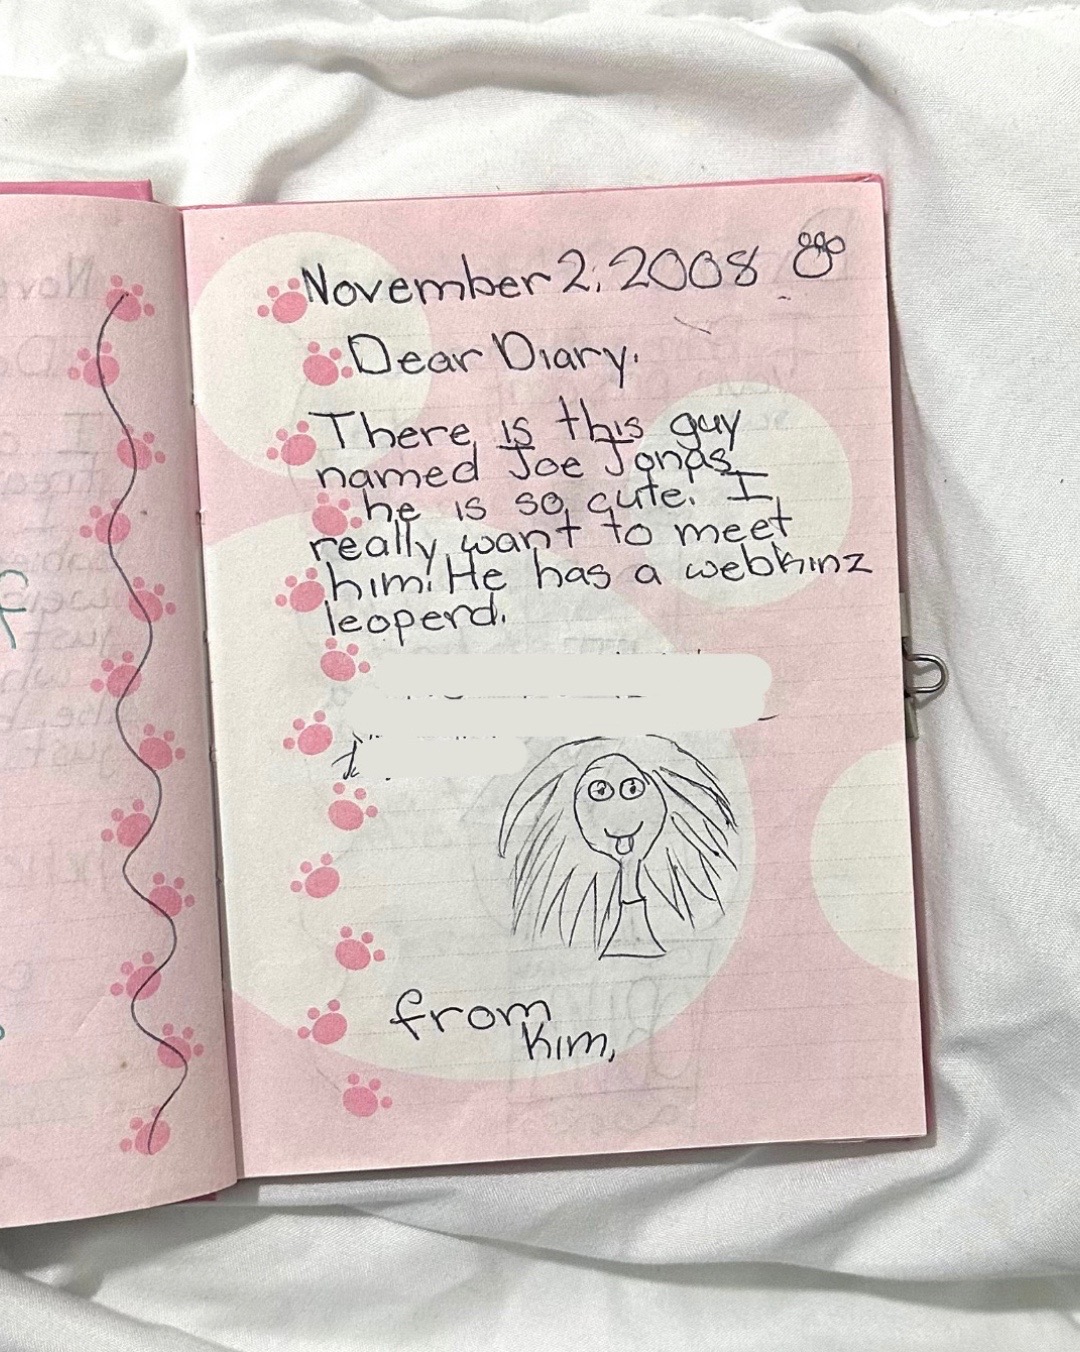 November 2, 2008
Dear Diary.
There is this guy
named Joe Jonas
he is so cute. I
really want to meet
him. He has a webkinz
leoperd.
from
Kim,